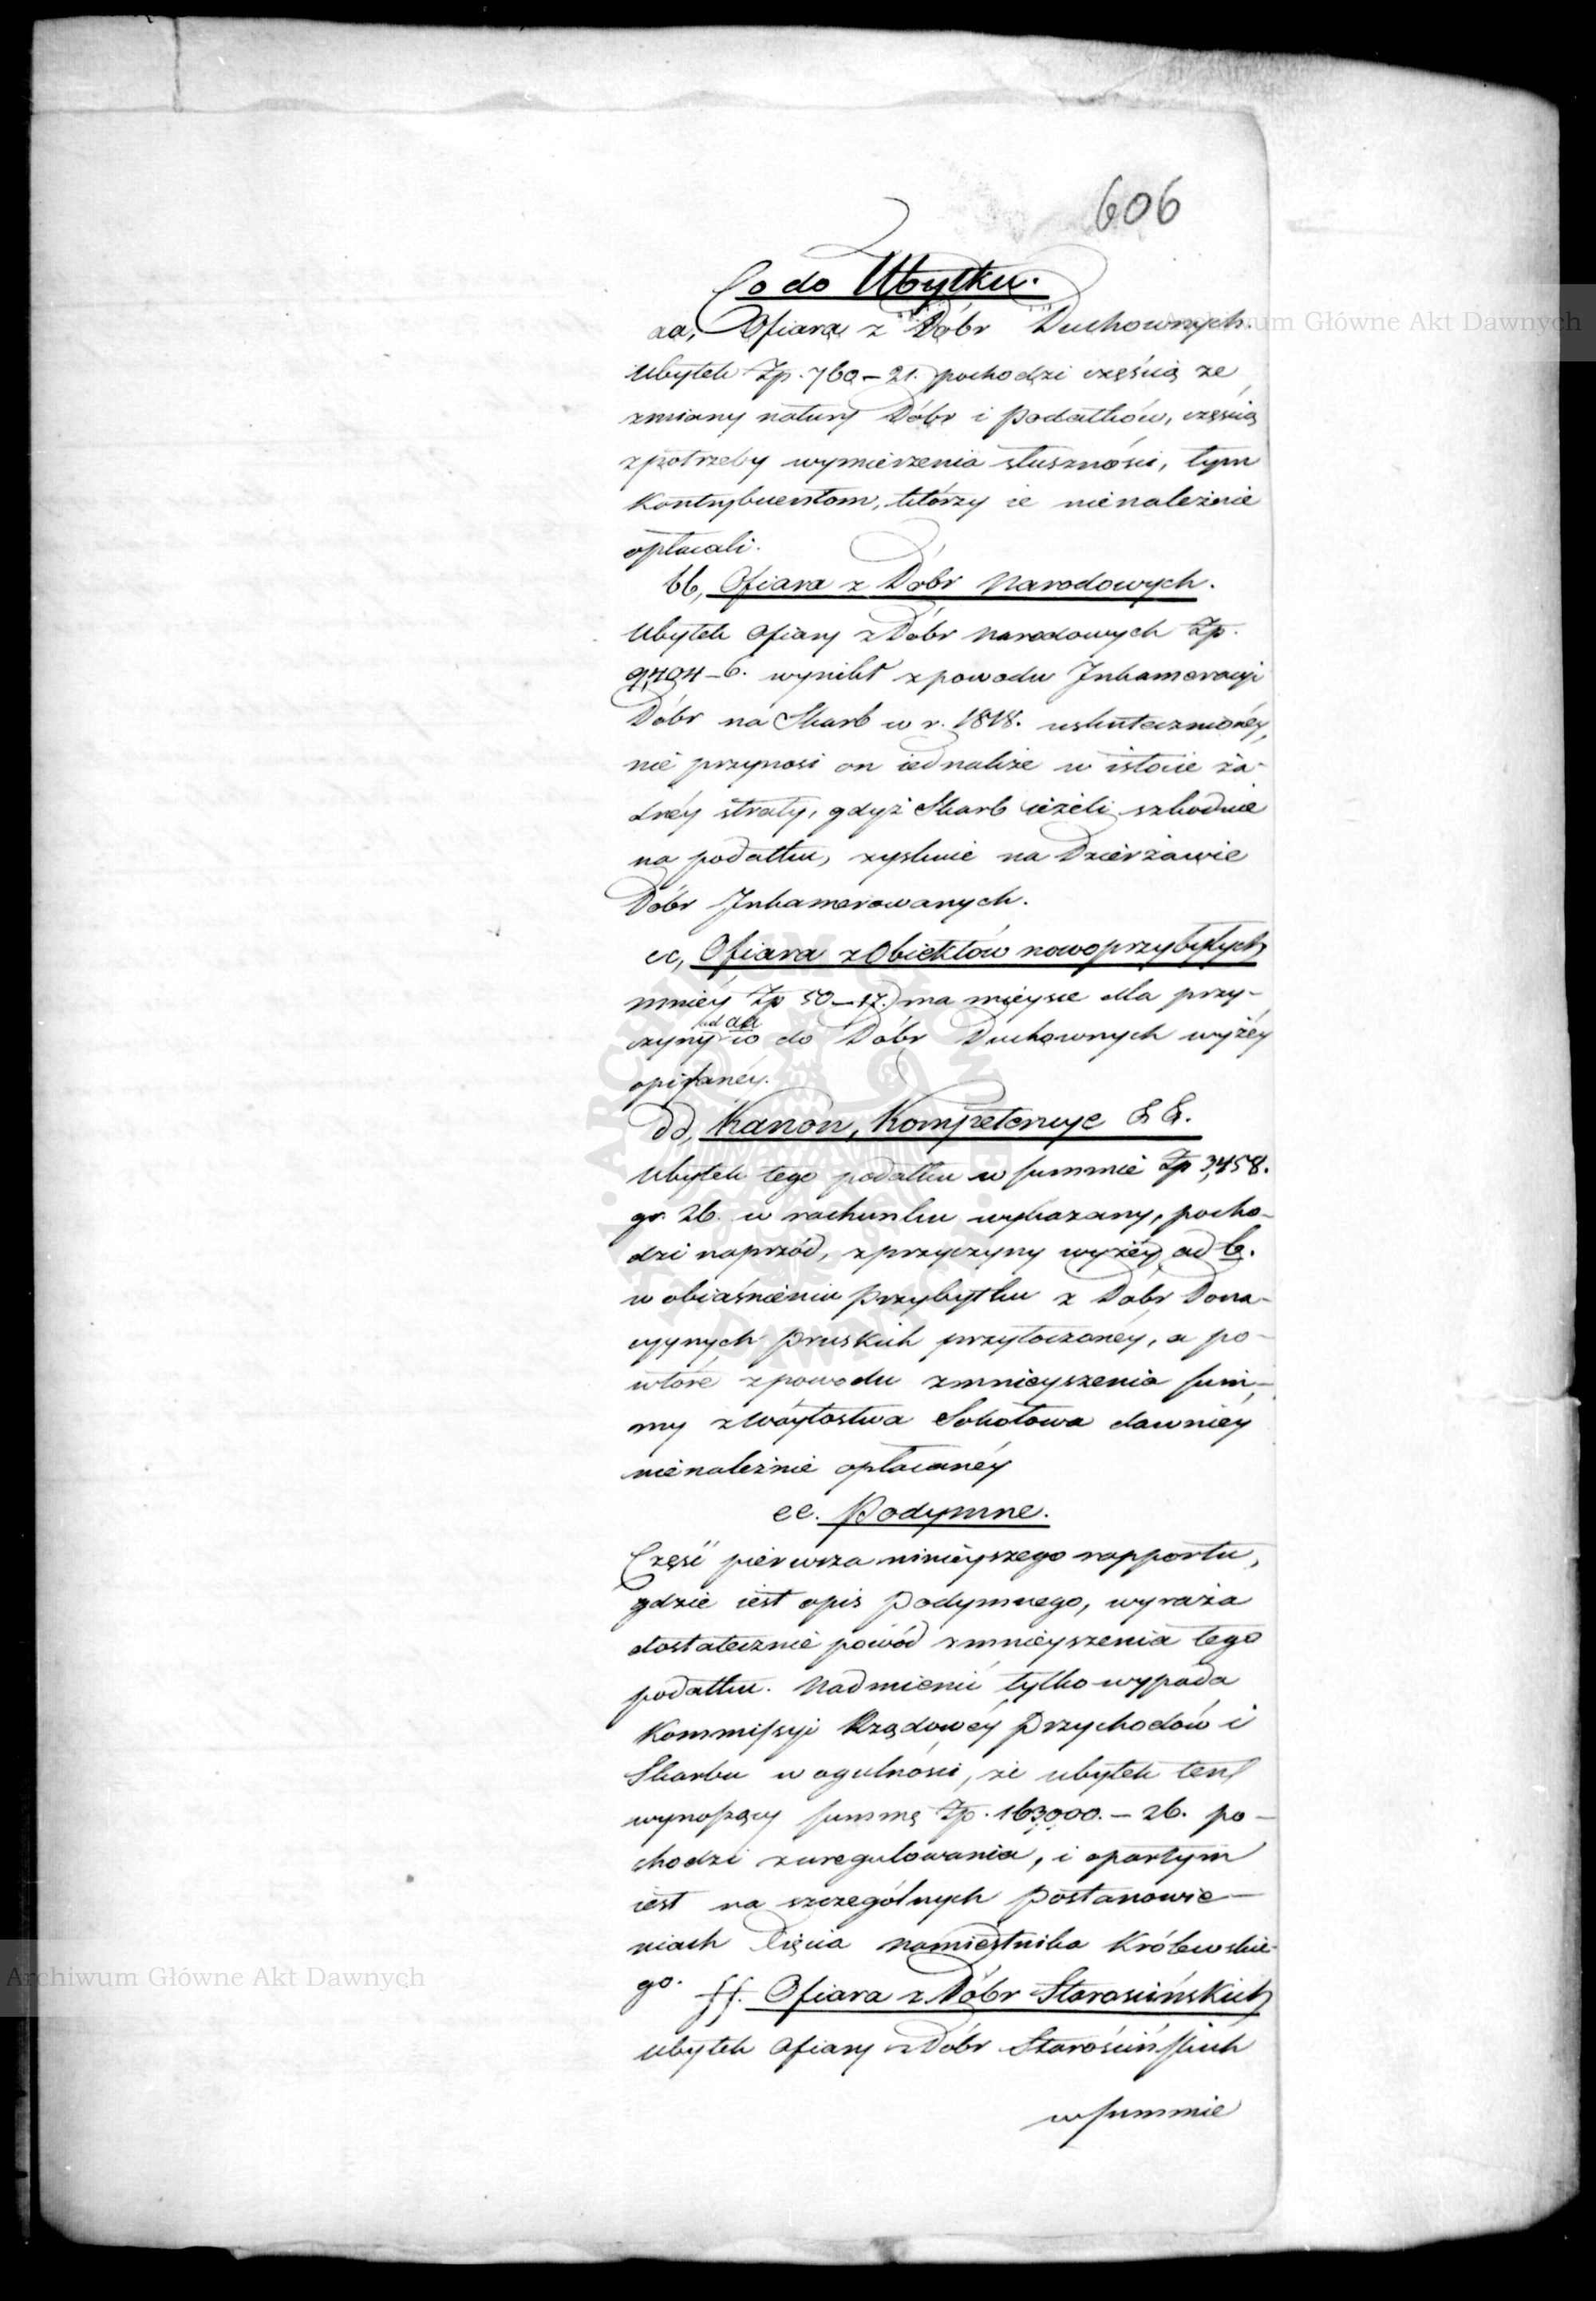 606
Co do Ubytku.
aa, Ofiara z Dóbr Duchownych.
Ubytek Zp. 760 – 21. pochodzi częścią ze
zmiany natury Dóbr i Podatków, częścią
z potrzeby wymierzenia słuszności, tym
Kontrybuentom, którzy ie nienależnie
opłacali.
bb, Ofiara z Dóbr Narodowych.
Ubytek Ofiary z Dóbr Narodowych Zp.
– 6. wynikł z powodu Inkameracyi
Dóbr na Skarb w r. 1818. uskutecznioney,
nie przynosi on iednakże w istocie ża-
dnéy straty, gdyż Skarb ieżeli szkoduie
na podatku, zyskuie na Dzierżawie
Dóbr Inkamerowanych.
cc, Ofiara z Obiektów nowoprzybyłych
mniéy Zp 50 – 17. ma mieysce dla przy-
ad aa
czyny co do Dóbr Duchownych wyżéy
opisanéy.
dd, Kanon, Kompetencye & &.
Ubytek tego podatku w summie Zp 3,458.
gr. 26. w rachunku wykazany, pocho-
dzi naprzód, z przyczyny wyżéy ad b.
w obiaśnieniu przybytku z Dóbr Dona-
cyynych Pruskich przytoczonéy, a po-
wtóre z powodu zmnieyszenia sum-
my z Wóytostwa Sokołowa dawniéy
nienależnie opłacanéy
ee. Podymne.
Część pierwsza ninieyszego rapportu,
gdzie iest opis Podymnego, wyraża
dostatecznie powód zmnieyszenia tego
podatku. Nadmienić tylko wypada
Kommissyi Rządowéy Przychodów i
Skarbu w ogulności, że ubytek ten
wynoszący summę Zp. 163,000. – 26. po-
chodzi z uregulowania, i opartym
iest na szczególnych Postanowie-
niach Xięcia Namiestnika Królewskie-
go.
ff. Ofiara z Dóbr Starościńskich
Ubytek Ofiary z Dóbr Starościńskich
w summie
Archiwum Główne Akt Dawnych
Archiwum Główne Akt Dawnych